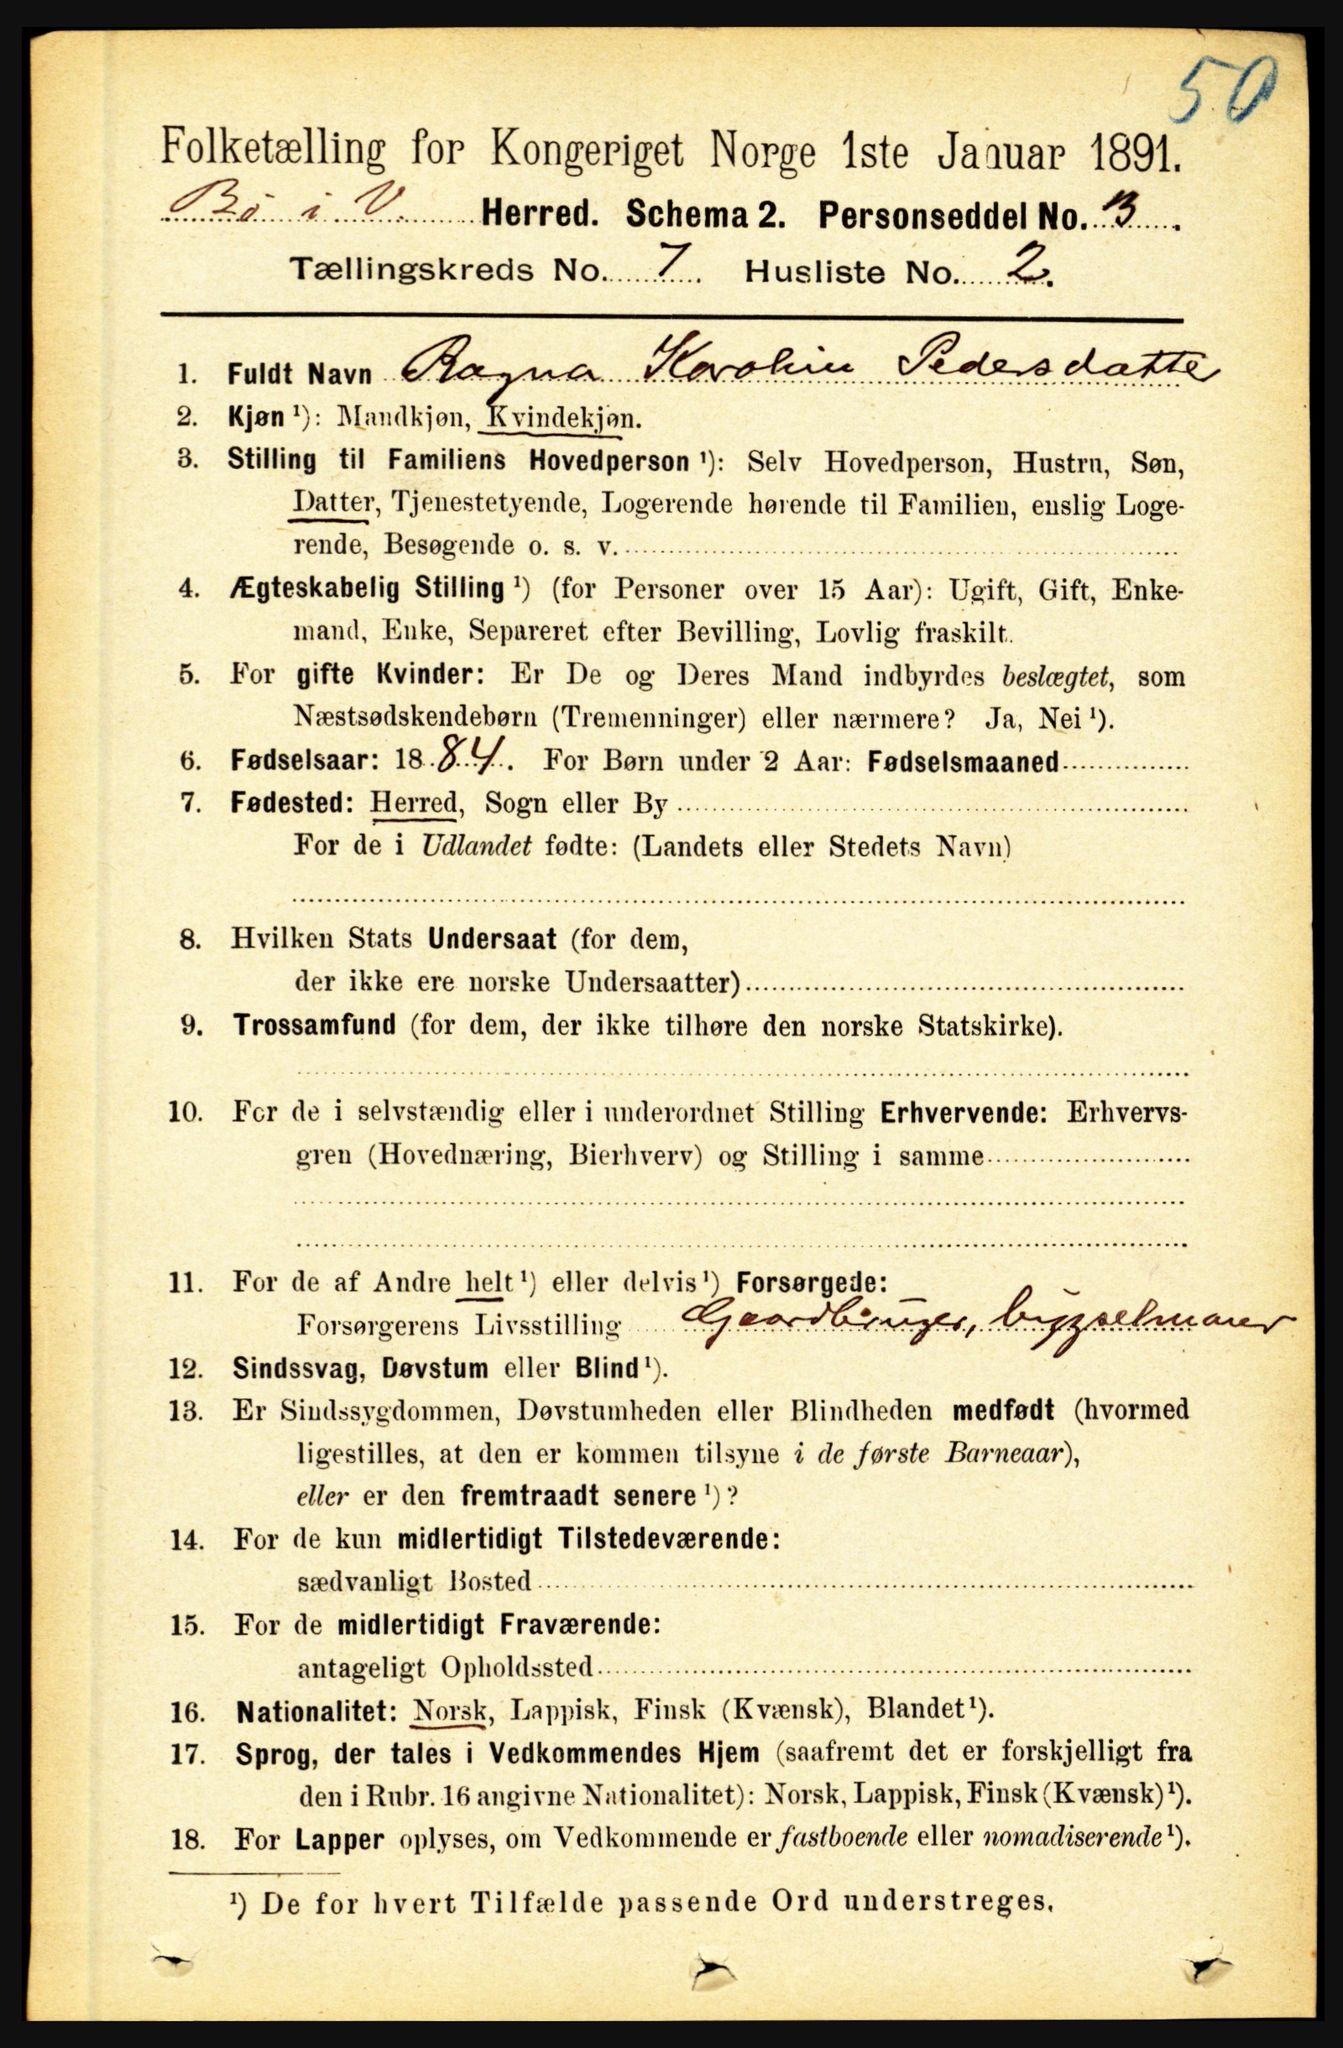 50
Folketælling for Kongeriget Norge 1ste Januar 1891.
Bø i V. Herred. Schema 2. Personseddel No. 3.
Tællingskreds No. 7. Husliste No. 2.
1. Fuldt Navn Ragna Karolin Pedersdatter
2. Kjøn ¹): Mandkjøn, Kvindekjøn.
3. Stilling til Familiens Hovedperson ¹): Selv Hovedperson, Hustru, Søn,
Datter, Tjenestetyende, Logerende hørende til Familien, enslig Loge-
rende, Besøgende o. s. v.
4. Ægteskabelig Stilling ¹) (for Personer over 15 Aar): Ugift, Gift, Enke-
mand, Enke, Separeret efter Bevilling, Lovlig fraskilt.
5. For gifte Kvinder: Er De og Deres Mand indbyrdes beslægtet, som
Næstsødskendebørn (Tremenninger) eller nærmere? Ja, Nei ¹).
6. Fødselsaar: 1884. For Børn under 2 Aar: Fødselsmaaned
7. Fødested: Herred, Sogn eller By
For de i Udlandet fødte: (Landets eller Stedets Navn)
8. Hvilken Stats Undersaat (for dem,
der ikke ere norske Undersaatter)
9. Trossamfund (for dem, der ikke tilhøre den norske Statskirke).
10. For de i selvstændig eller i underordnet Stilling Erhvervende: Erhvervs-
gren (Hovednæring, Bierhverv) og Stilling i samme
11. For de af Andre helt ¹) eller delvis ¹) Forsørgede:
Forsørgerens Livsstilling Gaardbruger, bygselmand
12. Sindssvag, Døvstum eller Blind ¹).
13. Er Sindssygdommen, Døvstumheden eller Blindheden medfødt (hvormed
ligestilles, at den er kommen tilsyne i de første Barneaar),
eller er den fremtraadt senere ¹)?
14. For de kun midlertidigt Tilstedeværende:
sædvanligt Bosted
15. For de midlertidigt Fraværende:
antageligt Opholdssted
16. Nationalitet: Norsk, Lappisk, Finsk (Kvænsk), Blandet ¹).
17. Sprog, der tales i Vedkommendes Hjem (saafremt det er forskjelligt fra
den i Rubr. 16 angivne Nationalitet): Norsk, Lappisk, Finsk (Kvænsk) ¹).
18. For Lapper oplyses, om Vedkommende er fastboende eller nomadiserende ¹).
¹) De for hvert Tilfælde passende Ord understreges.